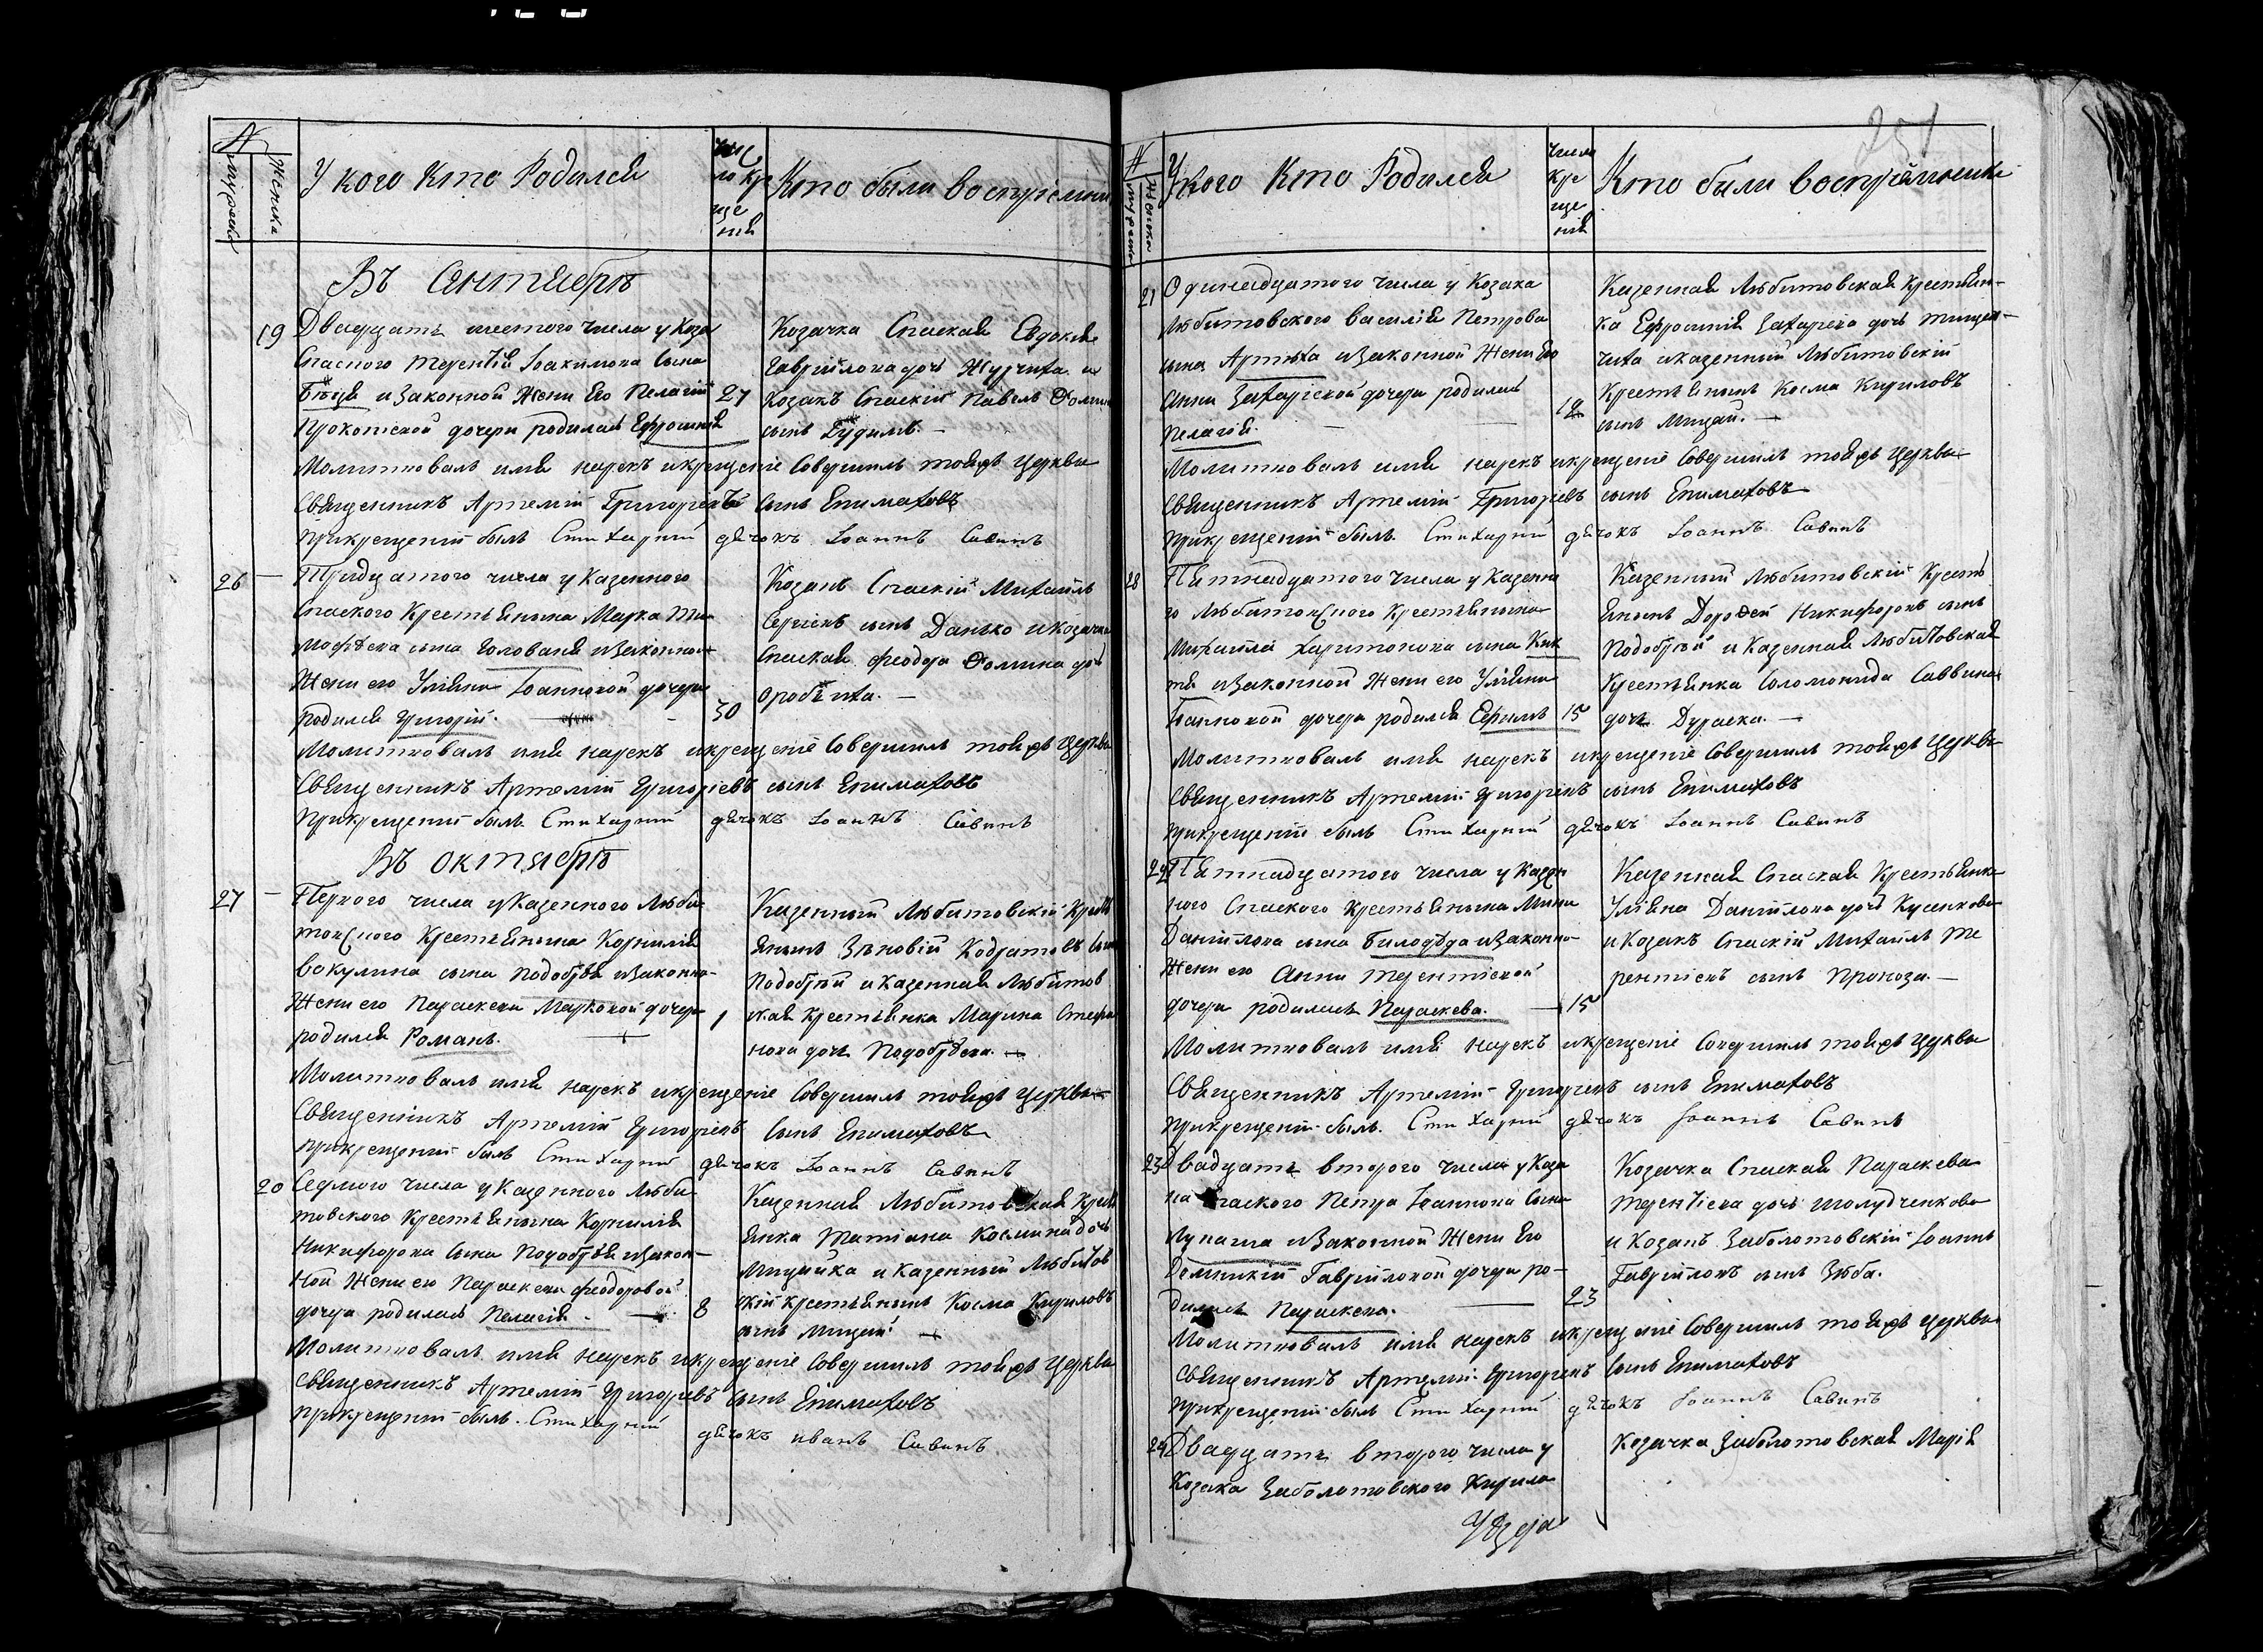 №
мужска
Женска
У кого Кто Родился
чис
ло кре
ще
ния
Кто были воспрiемни
Въ Сентябрѣ
19
Двадцать шестого числа у Коза
Спаского Терентiя Iоакимова сына
Бѣця и законной Жени Его Пелагiи
Прокопской дочери родилась Ефросинiя
27
Козачка Спаская Евдокiя
Гаврiилова дочь Журчиха и
Козакъ Спаскiй Павелъ Фомин
сынъ Будимъ.
Молитвовалъ имя нарекъ и крещенiе Совершилъ тояжъ Церкви
Священникъ Артемiй Григорiевъ сынъ Епимаховъ
При крещенiи былъ Стихарный дячокъ Iоаннъ Савинъ
26
Тридцатого числа у Казенного
Спаского Крестьянина Марка Ти
мофѣева сына Голованя и законной
Жени его Улiяни Iоанновой дочери
родился Григорiй.
30
Козакъ Спаскiй Михаилъ
Сергiевъ сынъ Данько и козачка
Спаская Феодора Фомина дочь
Молитвовалъ имя нарекъ и крещенiе Совершилъ тояжъ Церкви
Священникъ Артемiй Григорiевъ сынъ Епимаховъ
При крещенiи былъ Стихарный дячокъ Iоаннъ Савинъ
Въ октябрѣ
27
Первого числа у Казенного Люби
товского Крестьянина Корнилiя
Вакулина сына Подобрѣя и законно
Жени его Параскеви Марковой дочери
родился Романъ.
1
Казенный Любитовскiй Кресть
янинъ Зѣновiй Кодратовъ сынъ
Подобрѣй и Казенная Любитов
ская крестьянка Марина Стефа
нова дочь Подобрѣева.
Молитвовалъ имя нарекъ и крещенiе Совершилъ тояжъ Церкви
Священникъ Артемiй Григорiевъ сынъ Епимаховъ
При крещенiи былъ Стихарный дячокъ Iоаннъ Савинъ
20
Седмого числа у Казенного Люби
товского Крестьянина Корнилiя
Никифорова сына Подобрѣя и закон
ной Жени его Параскеви Феодоровой
дочери родилась Пелагiя.
8
Казенная Любитовская Кресть
янка Татiана Космина дочь
Мицайка и Казенный Любитов
скiй крестьянинъ Косма Кириловъ
сынъ Мицай.
Молитвовалъ имя нарекъ и крещенiе Совершилъ тояжъ Церкви
Священникъ Артемiй Григорiевъ сынъ Епимаховъ
При крещенiи былъ Стихарный дячокъ Иванъ Савинъ
251
№
мужска
Женска
У кого Кто Родился
числа
кре
ще
нiя
Кто были воспрiемники
21
Одинадцатого числа у Козака
Любитовского Василiя Петрова
сына Артюха и законной Жени Его
Анни Захарiевой дочери родилась
Пелагiя.
12
Казенная Любитовская Крестьян
ка Ефросинiя Захарiева дочь
чиха и казенный Любитовскiй
Крестьянинъ Косма Кириловъ
сынъ Мицай.
Молитвовалъ имя нарекъ и крещенiе Совершилъ тояжъ Церкви
Священникъ Артемiй Григорiевъ сынъ Епимаховъ
При крещенiи былъ Стихарный дячокъ Iоаннъ Савинъ
28
Пятнадцатого числа у Казенно
го Любитовского Крестьянина
Михаила Харитонова сына
и законной Жени его Улiяни
Iоанновой дочери родился Ефимъ
15
Казенный Любитовскiй Кресть
янинъ Дорофей Никифоровъ сынъ
Подобрѣй и Казенная Любитовская
Крестьянка Соломонида Саввина
дочь Дураева.
Молитвовалъ имя нарекъ и крещенiе Совершилъ тояжъ Церкви
Священникъ Артемiй Григорiевъ сынъ Епимаховъ
При крещенiи былъ Стихарный дячокъ Iоаннъ Савинъ
22
Пятнадцатого числа у Казен
ного Спаского Крестьянина Мини
Данiилова сына Билодѣда и законно
Жени его Анни Терентiевой
дочери родилась Параскева.
15
Казенная Спаская Крестьянка
Улiяна Данiилова дочь Кусенкова
и Козакъ Спаскiй Михаилъ Те
рентiевъ сынъ Прокоза.
Молитвовалъ имя нарекъ и крещенiе Совершилъ тояжъ Церкви
Священникъ Артемiй Григорiевъ сынъ Епимаховъ
При крещенiи былъ Стихарный дячокъ Iоаннъ Савинъ
23
Двадцать второго числа у Коза
ка Спаского Петра Iоаннова сына
Лупаша и законной Жени Его
Домникiи Гаврiиловой дочери ро
дилась Параскева.
23
Козачка Спаская Параскева
Терентiева дочь Шолудченкова
и Козакъ Заболотовскiй Iоаннъ
Гаврiиловъ сынъ Зѣба.
Молитвовалъ имя нарекъ и крещенiе Совершилъ тояжъ Церкви
Священникъ Артемiй Григорiевъ сынъ Епимаховъ
При крещенiи былъ Стихарный дячокъ Iоаннъ Савинъ
24
Двадцать второго числа у
Козака Заболотовского Кирила
Козачка Заболотовская Марiя